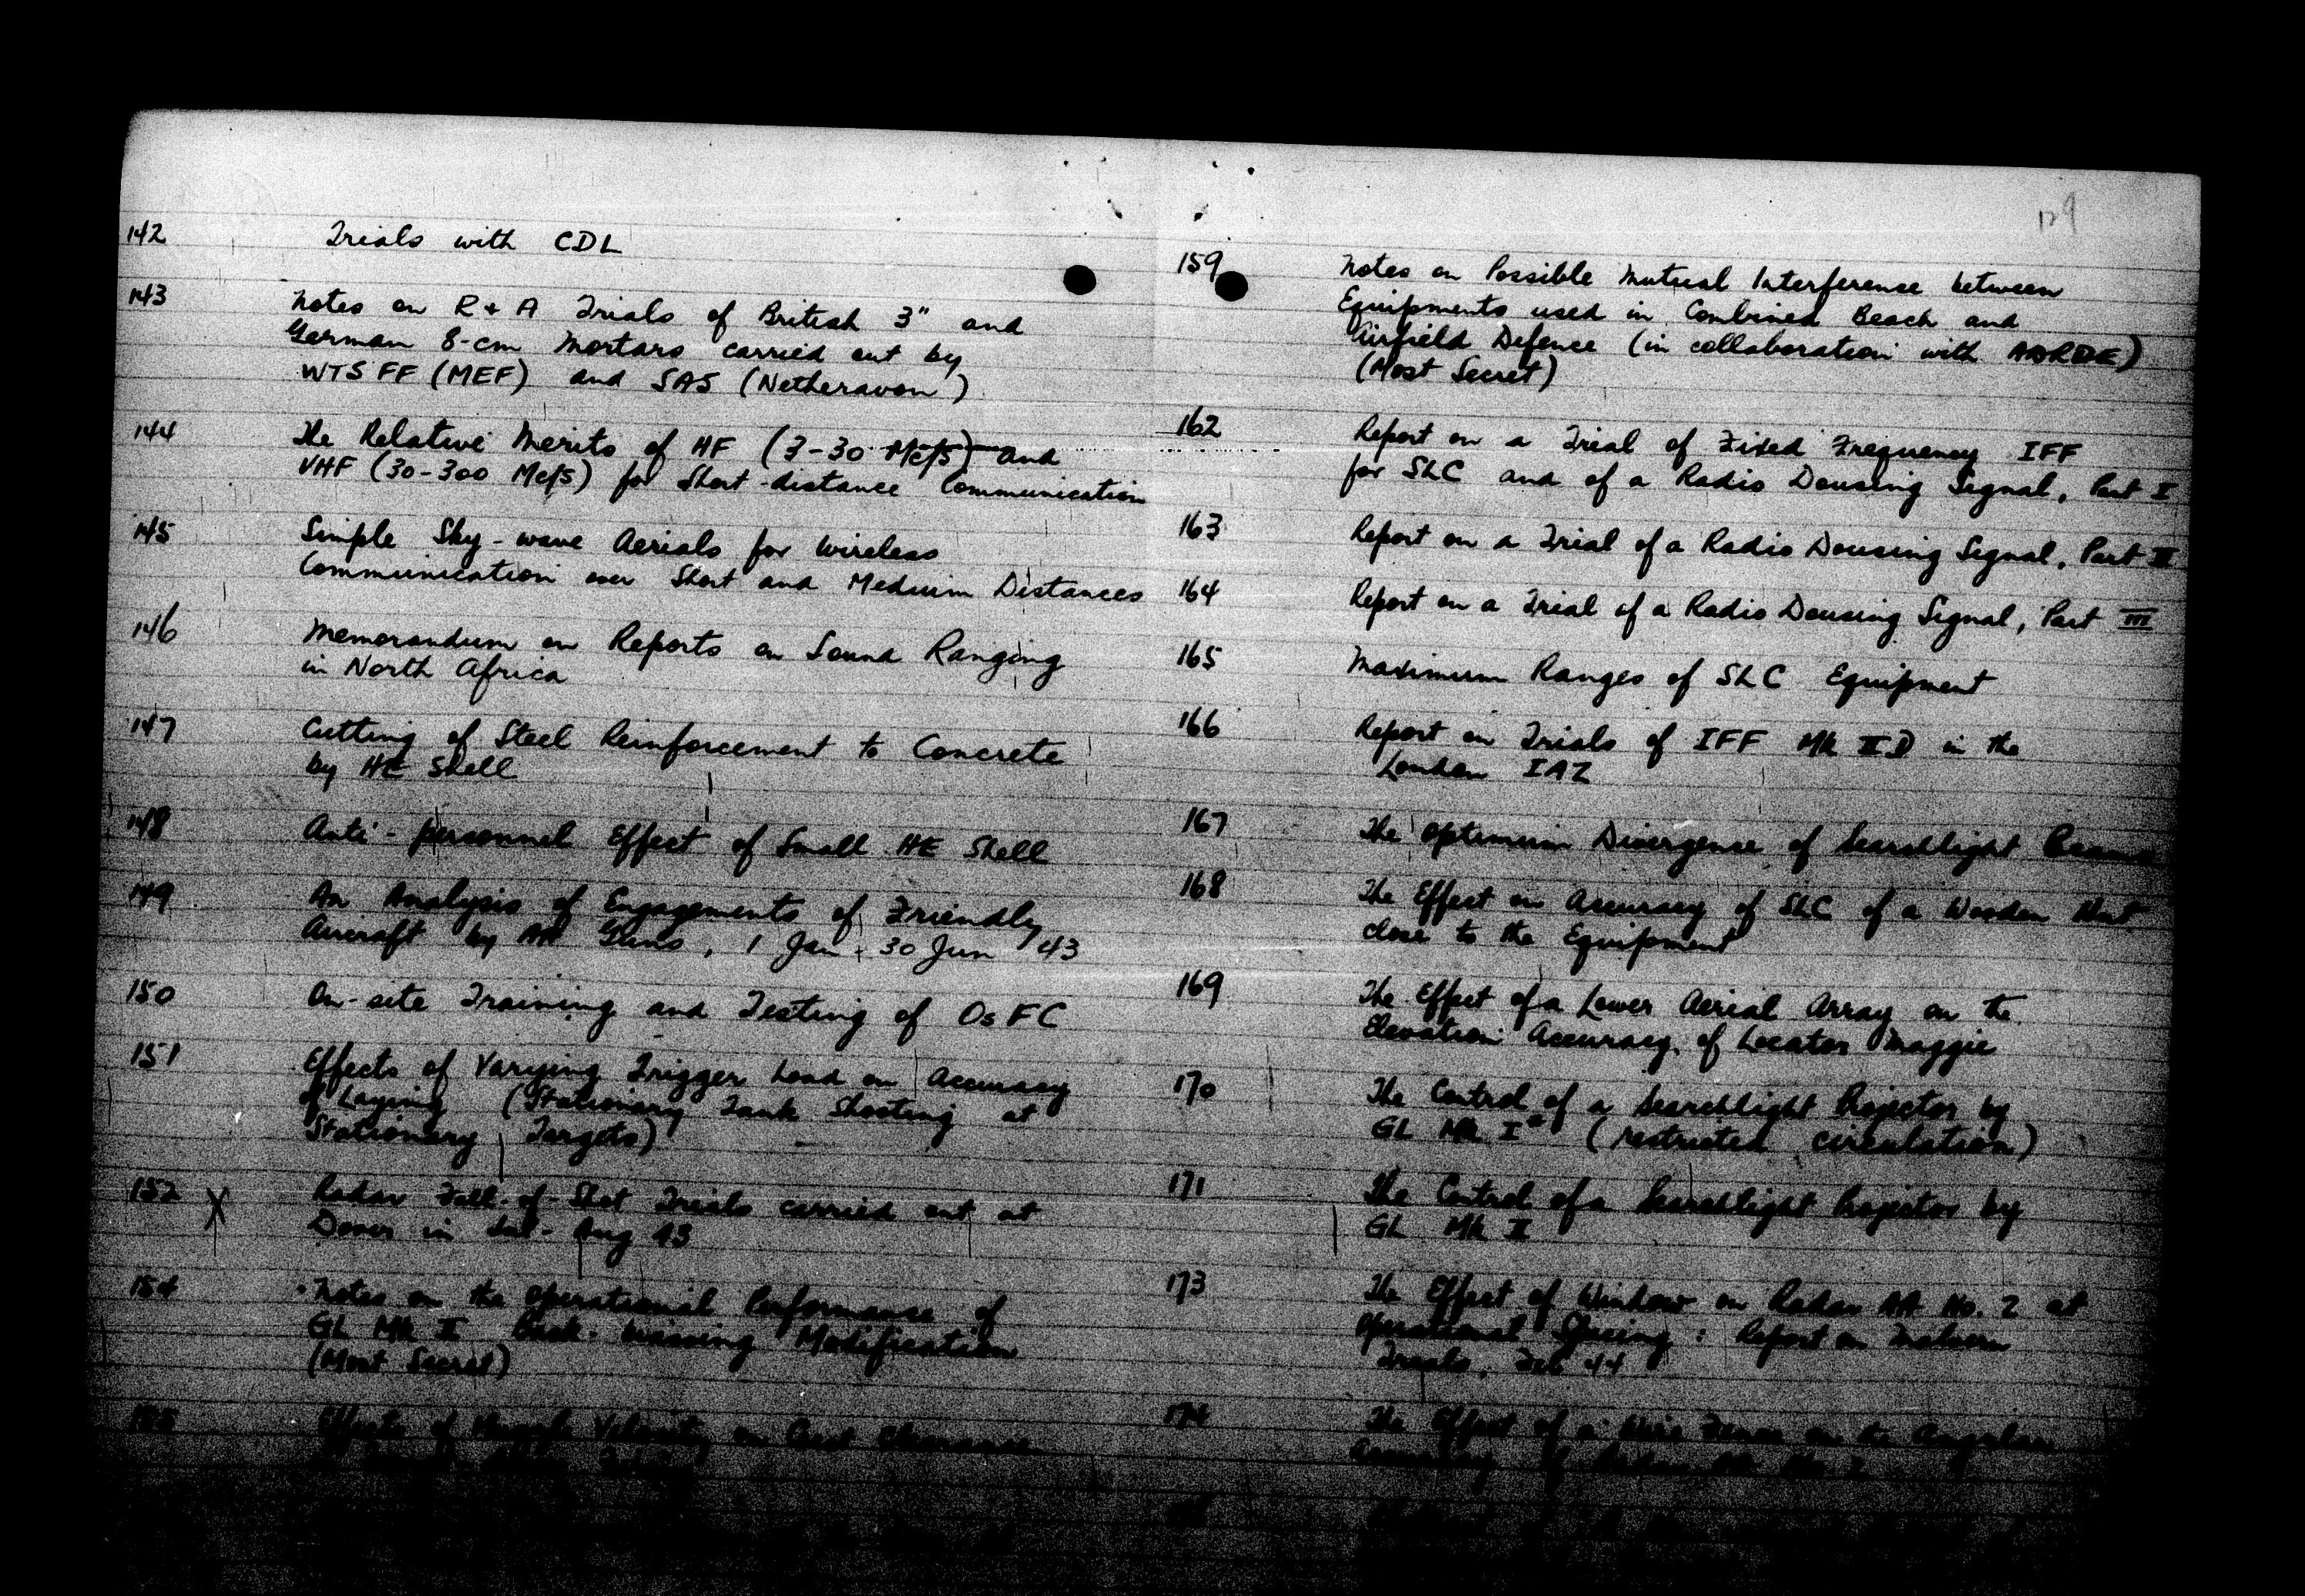 129
142 Trials with CDL
143 Notes on R & A Trials of British 3" and
German 8-cm Mortars carried out by
WTSFF (MEF) and SAS (Netheravon)
144 The Relative Merits of HF (3-30 Mc/s) and
VHF (30-300 Mc/s) for Short-distance Communication
145 Simple Sky-wave Aerials for Wireless
Communication over Short and Medium Distances
146 Memorandum on Reports on Sound Ranging
in North Africa
147 Cutting of Steel Reinforcement to Concrete
by HE Shell
148 Anti-personnel Effect of Small HE Shell
149 An Analysis of Engagements of Friendly
Aircraft by AA Guns, 1 Jan - 30 Jun 43
150 On-site Training and Testing of OsFC
151 Effects of Varying Trigger Load on Accuracy
of Laying (Stationary Tank Shooting at
Stationary Targets)
152 X Radar Fall-of-Shot Trials carried out at
Dover in Jul-Aug 43
154 Notes on the Operational Performance of
GL Mk II Modification
(Most Secret)
155 Effects of Muzzle Velocity on Crest Clearance
159 Notes on Possible Mutual Interference between
Equipments used in Combined Beach and
Airfield Defence (in collaboration with ADRDE)
(Most Secret)
162 Report on a Trial of Fixed Frequency IFF
for SLC and of a Radio Dousing Signal, Part I
163 Report on a Trial of a Radio Dousing Signal, Part II
164 Report on a Trial of a Radio Dousing Signal, Part III
165 Maximum Ranges of SLC Equipment
166 Report on Trials of IFF Mk II D in the
London IAZ
167 The Optimum Divergence of Searchlight Beams
168 The Effect on Accuracy of SLC of a Wooden Hut
close to the Equipment
169 The Effect of a Lower Aerial Array on the
Elevation Accuracy of Locator Maggie
170 The Control of a Searchlight Projector by
GL Mk I* (restricted circulation)
171 The Control of a Searchlight Projector by
GL Mk II
173 The Effect of Window on Radar AA No. 2 at
Operational Spacing: Report on Malvern
Trials, Feb 44
174 The Effect of a Wire Fence on the Angular
Accuracy of Radar AA No. 2